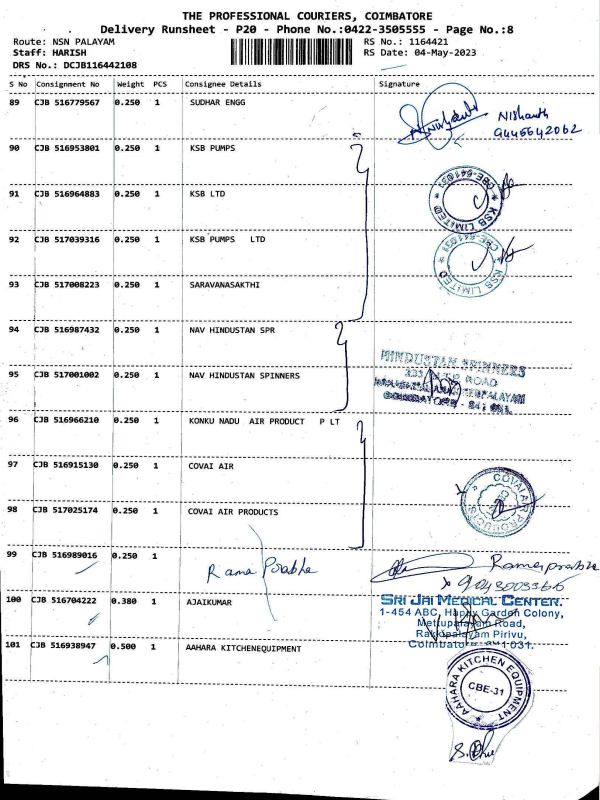 THE PROFESSIONAL COURIERS, COIMBATORE
Delivery Runsheet - P20 - Phone No.:0422-3505555 - Page No.:8
Route: NSN PALAYAM RS No.: 1164421
Staff: HARISH RS Date: 04-May-2023
DRS No.: DCJB116442108
S No Consignment No Weight PCS Consignee Details Signature
89 CJB 516779567 0.250 1 SUDHAR ENGG
Nishanth
9445642062
90 CJB 516953801 0.250 1 KSB PUMPS
91 CJB 516964883 0.250 1 KSB LTD
KSB LIMITED * CBE-641031 *
92 CJB 517039316 0.250 1 KSB PUMPS LTD
KSB LIMITED * CBE-641031 *
93 CJB 517008223 0.250 1 SARAVANASAKTHI
94 CJB 516987432 0.250 1 NAV HINDUSTAN SPR
HINDUSTAN SPINNERS
ROAD
95 CJB 517001002 0.250 1 NAV HINDUSTAN SPINNERS
COIMBATORE - 641 031.
96 CJB 516966210 0.250 1 KONKU NADU AIR PRODUCT P LT
97 CJB 516915130 0.250 1 COVAI AIR
COVAI AIR PRODUCTS
98 CJB 517025174 0.250 1 COVAI AIR PRODUCTS
99 CJB 516989016 0.250 1
Rama Prabha
Ramaprabha
100 CJB 516704222 0.380 1 AJAIKUMAR
SRI JAI MEDICAL CENTER.
1-454 ABC, Happy Garden Colony,
Mettupalayam Road,
Rakkipalayam Pirivu,
Coimbatore - 641 031.
101 CJB 516938947 0.500 1 AAHARA KITCHENEQUIPMENT
AAHARA KITCHEN EQUIPMENT
CBE-31